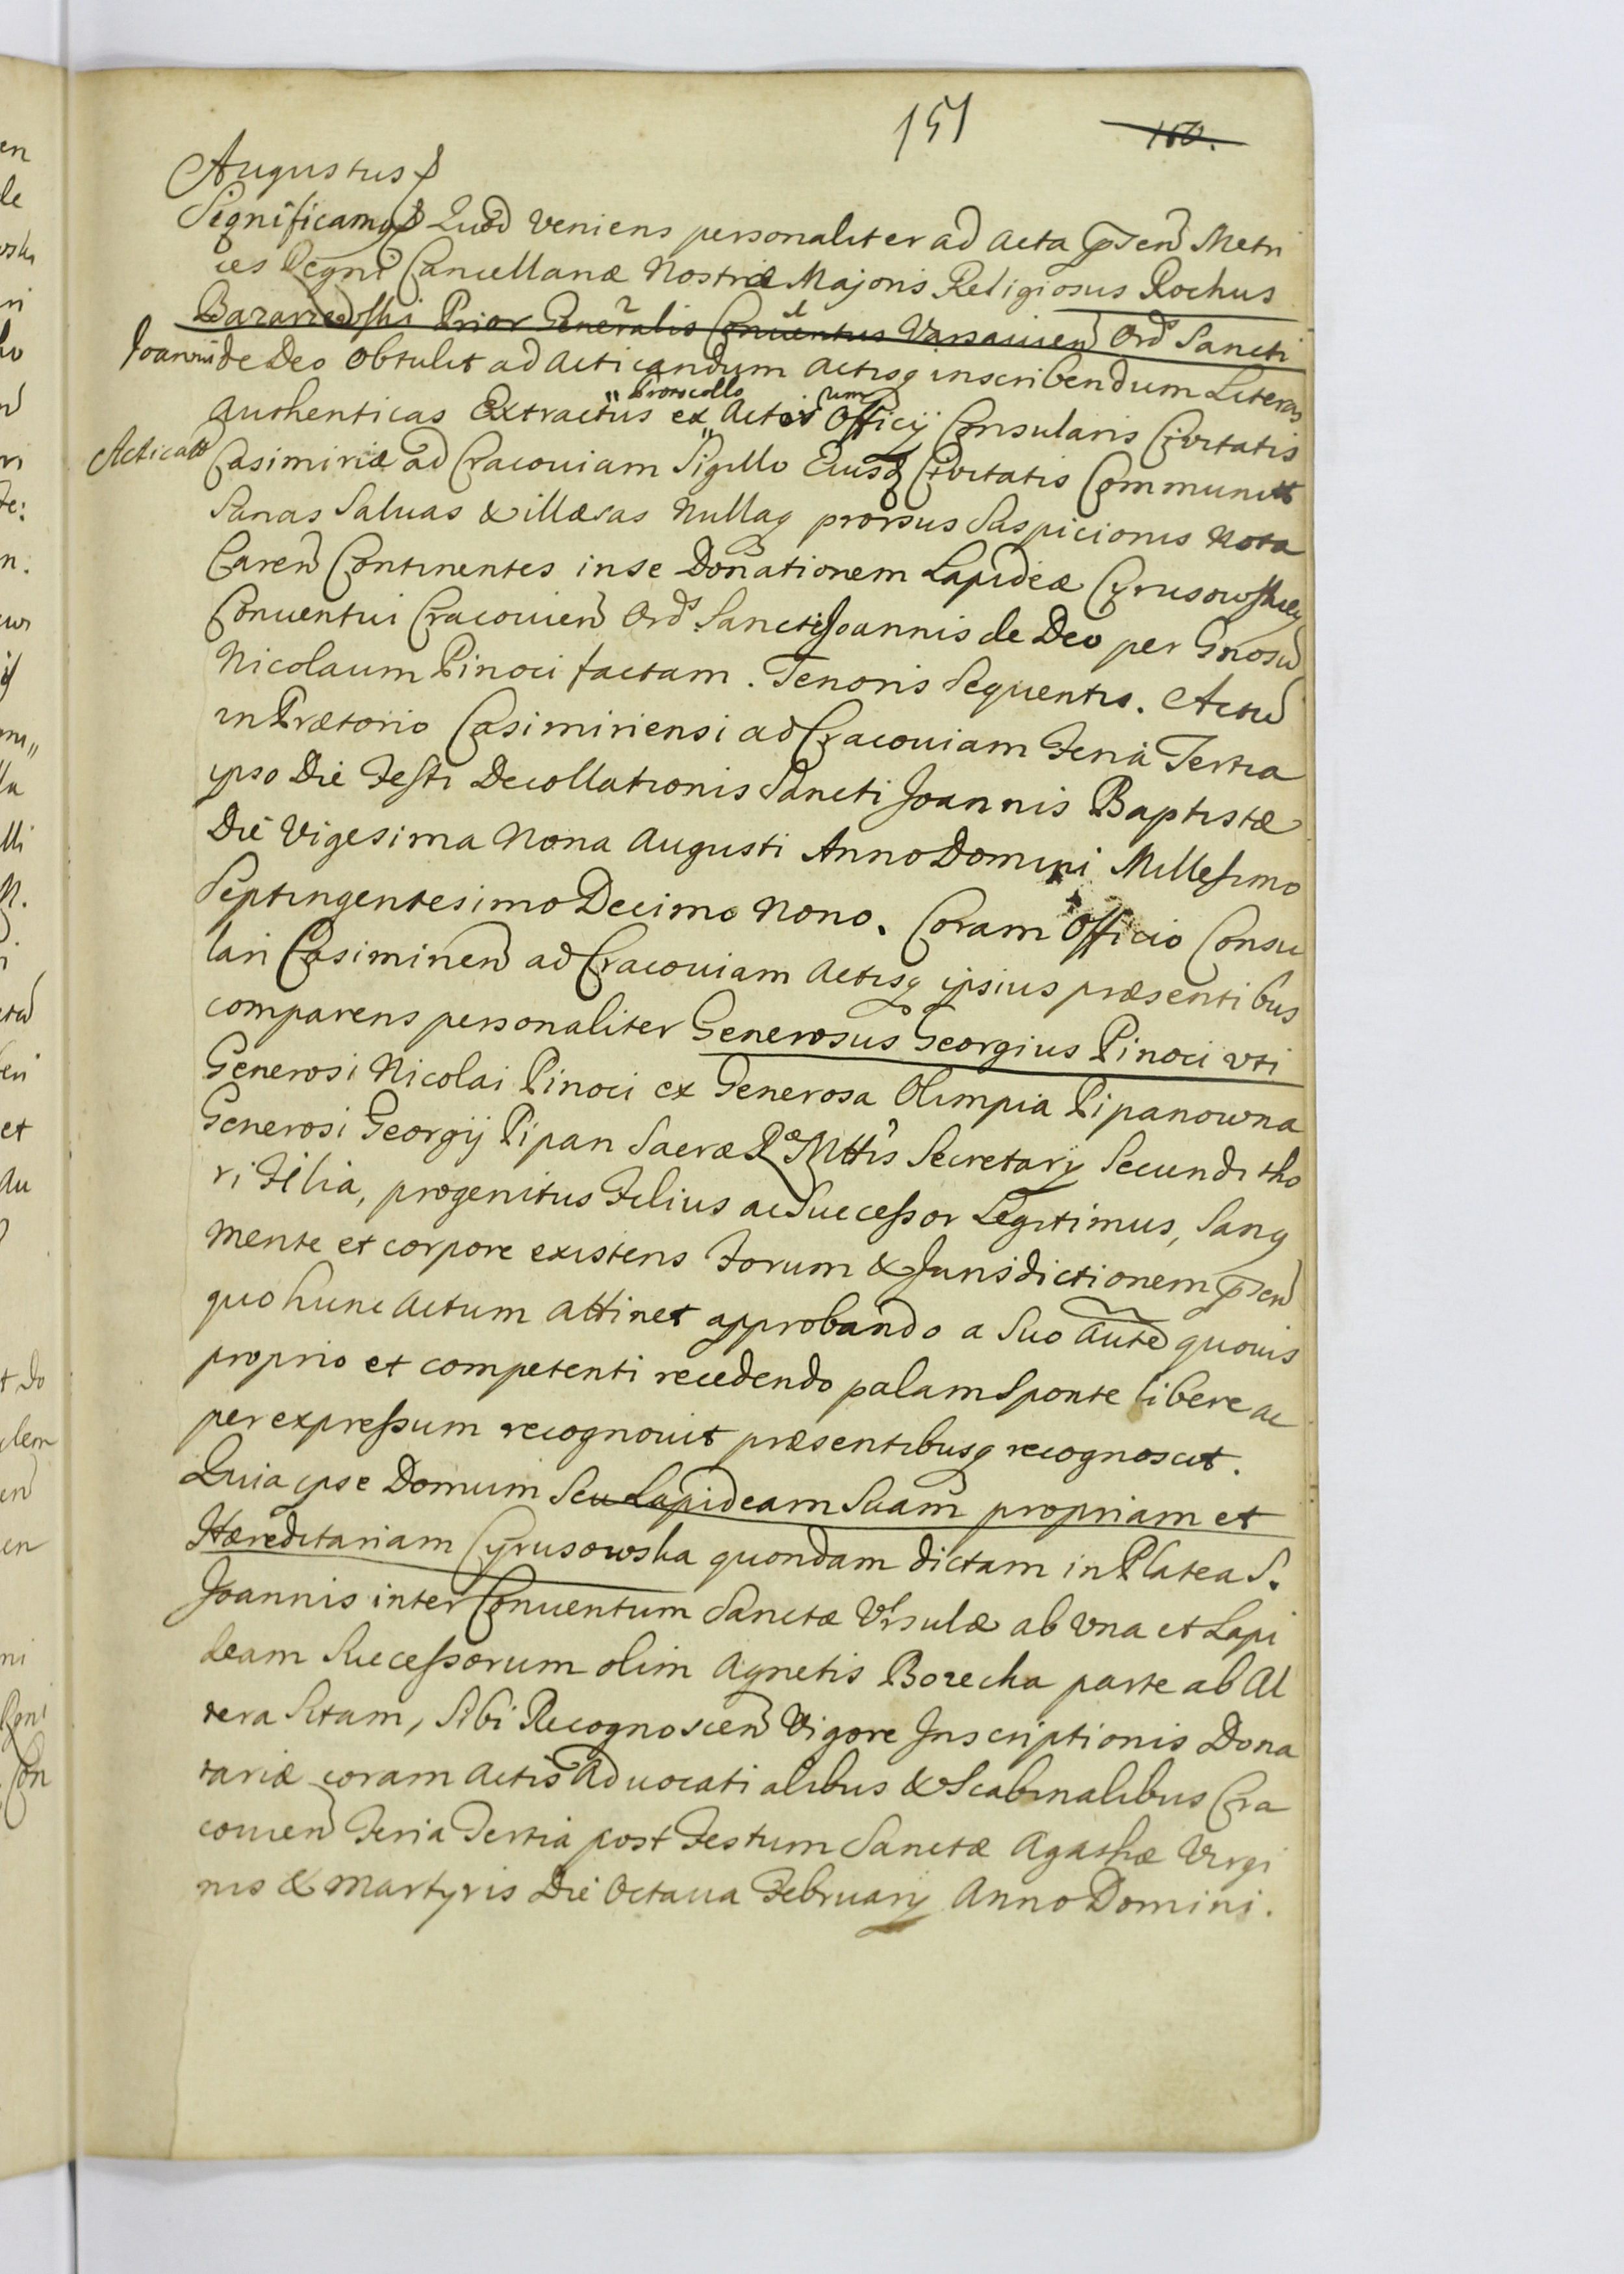 151
150.
Augustus
Significamus Quod veniens personaliter ad Acta pnsen Metri
ces Regni Cancellariæ Nostræ Majoris Religiosus Rochus
Prior Generalis Conuentus Varsauien Ord. Sancti
Joannis de Deo obtulit ad Acticandum Actisq inscribendum Literas
Authenticas Extractus ex „Protocollo Actorum Officij Consularis Civitatis
Acticatt
Casimiriæ ad Cracouiam Sigillo Eiusd Civitatis Communitt
Sanas Saluas & illæsas Nullaq prorsus Suspicionis Nota
Caren Continentes in se Donationem Lapideæ Cyrusowskiey
Conuentui Cracouien Ord. Sancti Joannis de Deo per Gnosu
Nicolaum Pinoci factam. Tenoris Sequentis. Actu
in Prætorio Casimiriensi ad Cracouiam Feria Tertia
ipso Die Festi Decollationis Sancti Joannis Baptistæ
Die Vigesima Nona Augusti Anno Domini Millesimo
Septingentesimo Decimo Nono. Coram Officio Consu
lari Casimirien ad Cracouiam Actisq ipsius præsentibus
comparens personaliter Generosus Georgius Pinoci uti
Generosi Nicolai Pinoci ex Generosa Olimpia Pipanowna
Generosi Georgij Pipan Sacræ Ræ Mttis Secretarij Secundi tho
ri Filia, progenitus Filius ac Successor Legitimus, Sanq
mente et corpore existens Forum & Jurisdictionem pnsen
quo hunc Actum attinet approbando a Suo Aute quouis
proprio et competenti recedendo palam Sponte libere ac
per expressum recognouit præsentibusq recognoscit.
Quia ipse Domum Seu Lapideam Suam propriam et
Hæreditariam Cyrusowska quondam dictam in Platea S.
Joannis inter Conuentum Sanctæ Vrsulæ ab Vna et Lapi
deam Successorum olim Agnetis Borecka parte ab Al
tera Sitam, Sibi Recognoscen Vigore Inscriptionis Dona
tariæ coram Actis Aduocatialibus & Scabinalibus Cra
couien Feria Tertia post Festum Sanctæ Agathæ Virgi
nis & Martyris Die Octaua February Anno Domini.